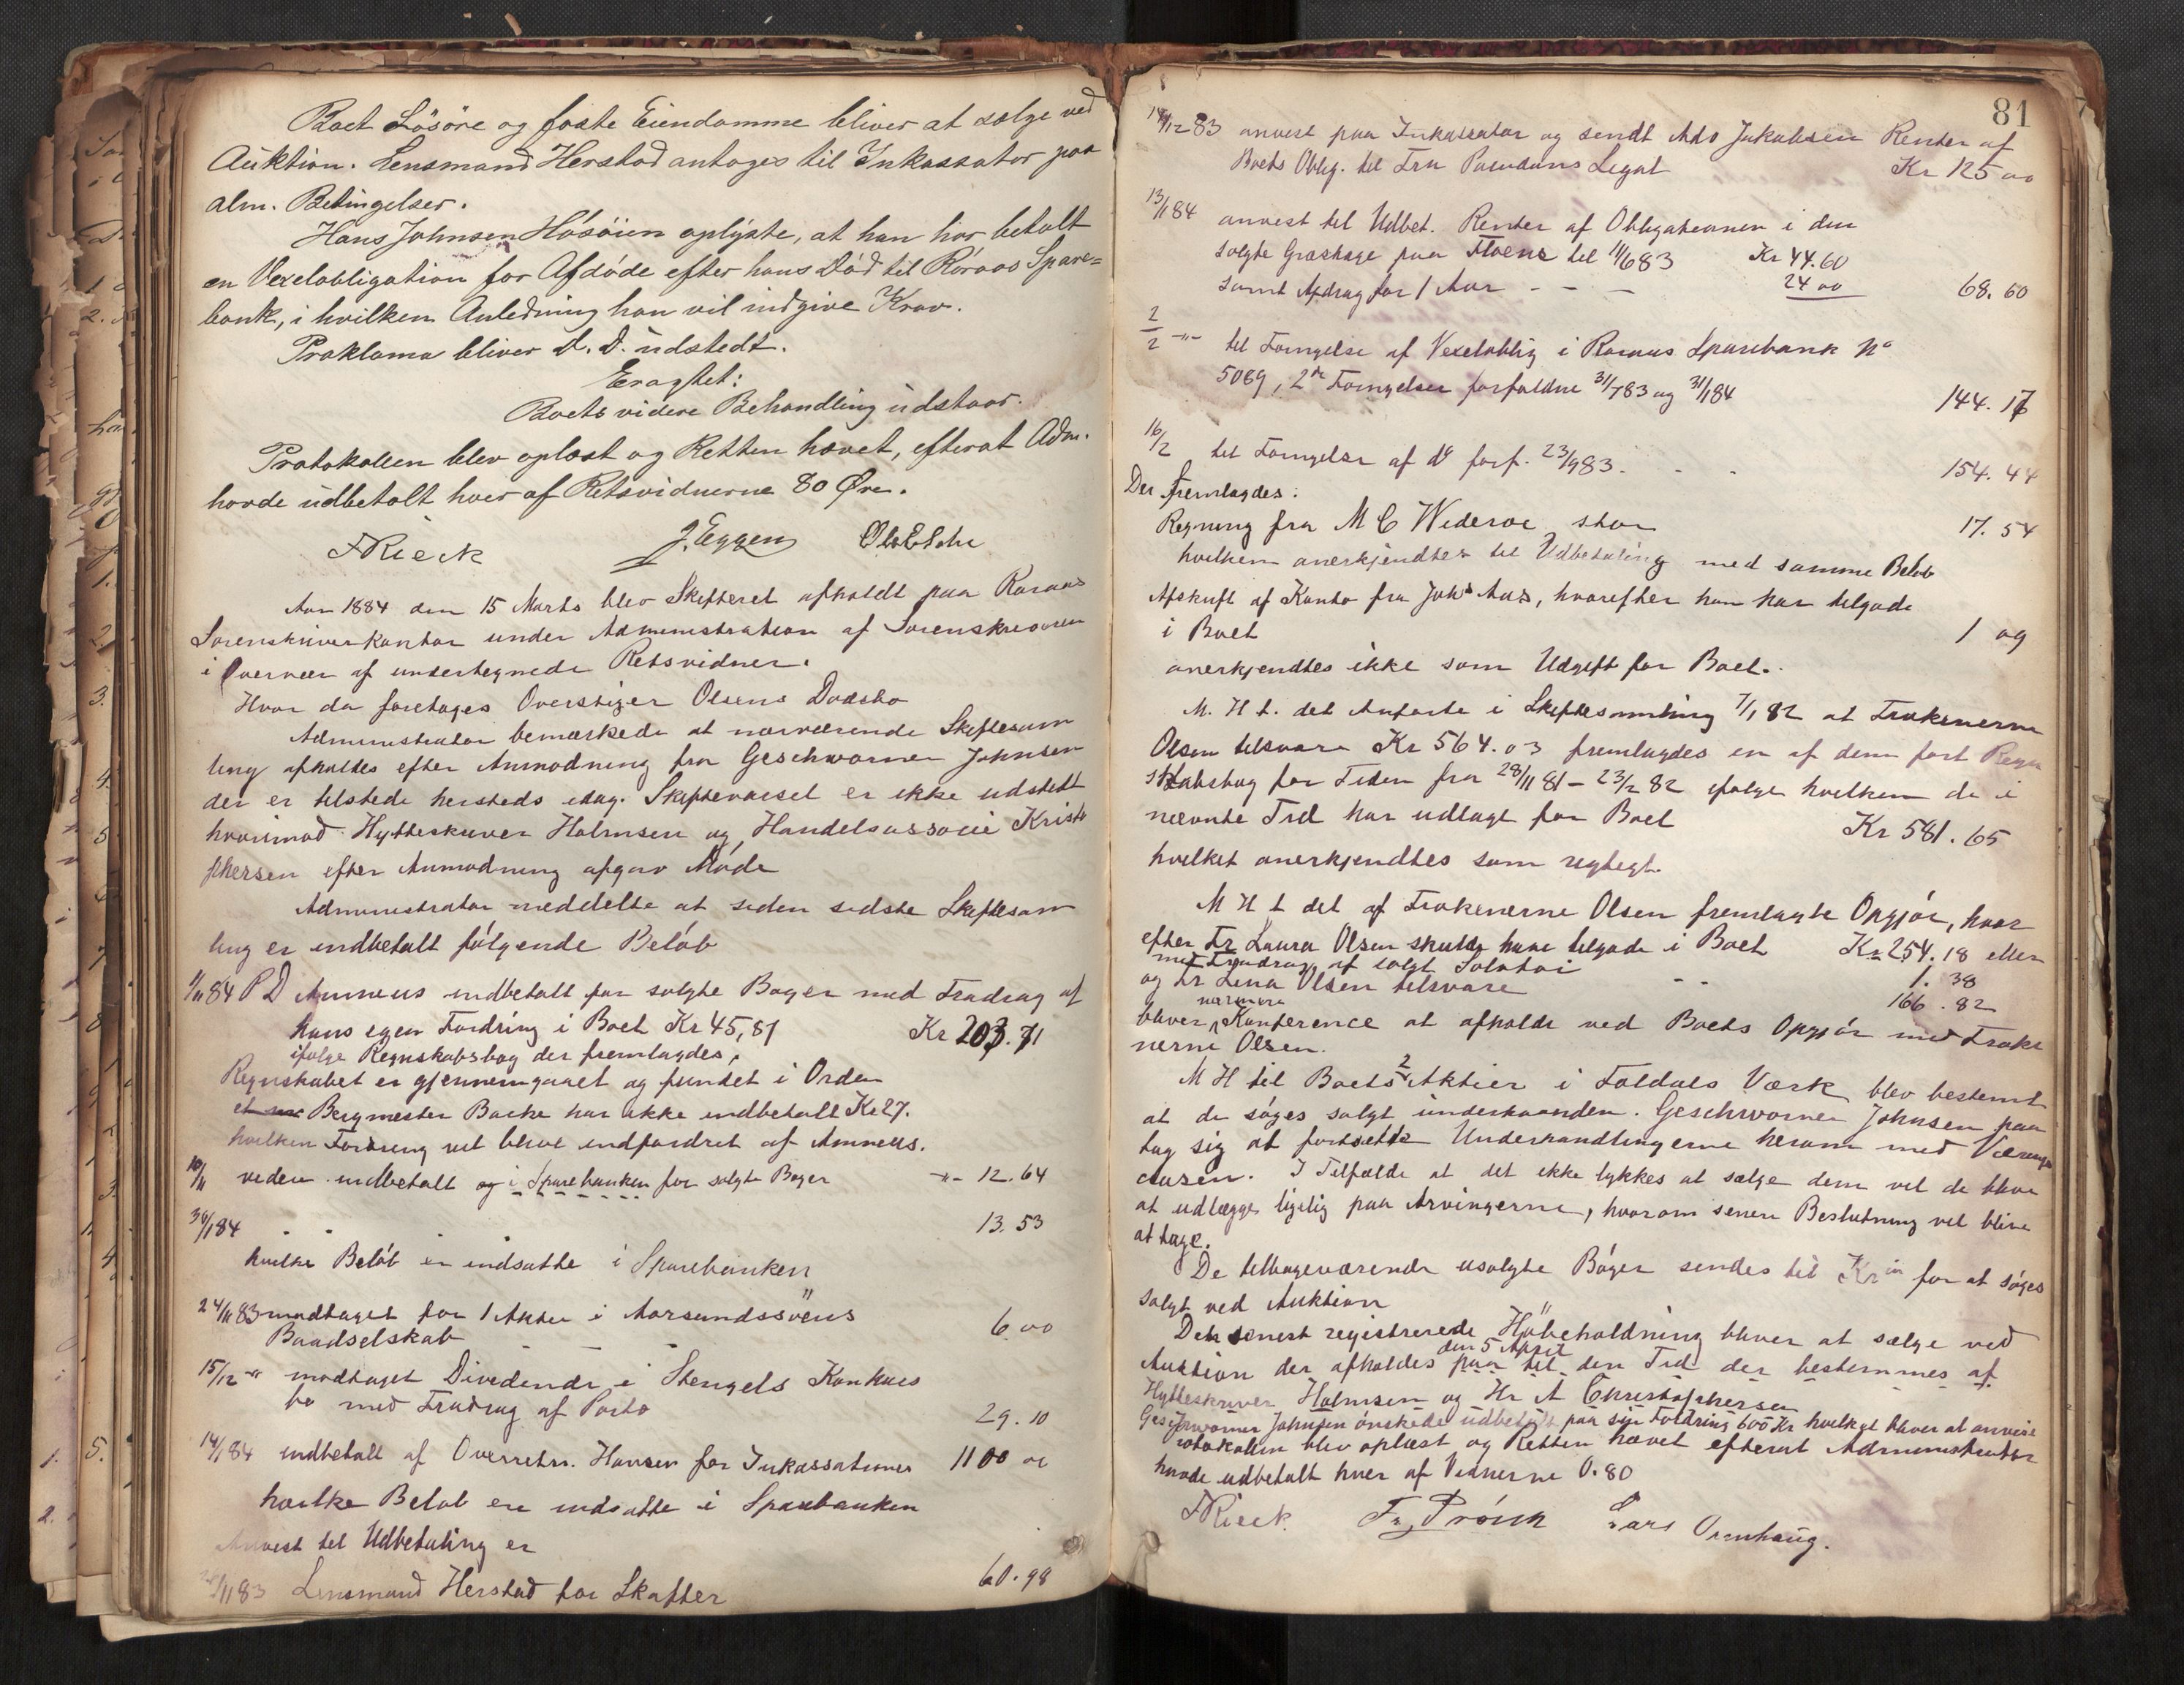 Boet Lösöre og faste Eiendomme bliver at sælge ved
Auktion. Lensmand Herstad antages til Inkassator paa
alm. Betingelser.
Hans Johnsen Håsöien oplyste, at han har betalt
en Vexelobligation for Afdøde efter hans Død til Röraas Spare=
bank, i hvilken Anledning han vil indgive Krav.
Proklama bliver D. D. udstedt.
Eragtet:
Boets videre Behandling udstaar.
Protokollen blev oplæst og Retten hævet, efterat Adm.
havde udbetalt hver af Retsvidnerne 80 Øre.
F Rieck J. Eggen
Aar 1884 den 15 Marts blev Skifteret afholdt paa Röraas
Sorenskriverkontor under Administration af Sorenskriveren
i Overvær af undertegnede Retsvidner.
Hvor da foretages Overstiger Olsens Dødsbo
Administrator bemærkede at nærværende Skiftesam
ling afholdes efter Anmodning fra Geschworner Johnsen
der er tilstede hersteds idag. Skiftevarsel er ikke udstedt
hvorimod Hytteskriver Holmsen og Handelsassocié Kristo
phersen efter Anmodning afgav Møde
Administrator meddelte at siden sidste Skiftesam
ling er indbetalt følgende Beløb
1/11 84 P D Anneus indbetalt for solgte Bøger med Fradrag af
hans egen Fordring i Boet Kr 45,87 Kr 203.71
ifølge Regnskabsbog der fremlagdes.
Regnskabet er gjennemgaaet og fundet i Orden
Bergmester Backe har ikke indbetalt Kr 27.
hvilken Fordring vil blive indfordret af Anneus.
10/11 videre indbetalt i Sparebanken for solgte Bøger -"- 12.64
30/1 84 " " 13.53
hvilke Beløb er indsatte i Sparebanken
24/11 83 modtaget for 1 Aktie i Aursundsøens 6.00
Baadselskab
15/12 -"- modtaget Dividende i Stengels Konkurs
bo med Fradrag af Porto 29.10
14/1 84 indbetalt af Overretss. Hansen for Inkassationer 1100 00
hvilke Beløb ere indsatte i Sparebanken
Anvist til Udbetaling er
/11 83 Lensmand Herstad for Skatter 60.98
81
14/12 83 anvist paa Inkassator og sendt Adv Jakobsen Renter af
Boets Oblig. til Fru Paludans Legat Kr 125 00
13/1 84 anvist til Udbet. Renter af Obligationen i den
solgte Græshage paa Floene til 11/6 83 Kr 44.60
samt Afdrag for 1 Aar - - - 24 00 68.60
2/2 -"- til Fornyelse af Vexeloblig i Röraas Sparebank No
5089, 2de Fornyelser forfaldne 31/7 83 og 31/1 84 144.17
16/2 til Fornyelse af do forf. 23/9 83. - - 154.44
Der fremlagdes:
Regning fra M C Wideroe stor 17.54
hvilken anerkjendtes til Udbetaling med samme Beløb
Afskrift af Konto fra Johs Aas, hvorefter han har tilgode
i Boet 1 09
anerkjendtes ikke som Udgift for Boet.
M. H t. det Anførte i Skiftesamling 7/1 82 at Frøkenerne
Olsen tilsvare Kr 564.03 fremlagdes en af dem ført Regn
skabsbog for Tiden fra 28/11 81 - 23/2 82 ifølge hvilken de i
nævnte Tid har udlagt for Boet Kr 581.65
hvilket anerkjendtes som rigtigt.
M H t det af Frøkenerne Olsen fremlagte Opgjør, hvor
efter Fr Laura Olsen skulde have tilgode i Boet Kr 254.18 eller
med Fradrag af solgt 1.38
og Fr Lina Olsen tilsvare - - 166.82
bliver nærmere Konference at afholde ved Boets Opgjør med Frøke
nerne Olsen.
M H til Boets 2 Aktier i Foldals Værk blev bestemt
at de søges solgt underhaanden. Geschworner Johnsen paa
tog sig at fortsætte Underhandlingerne herom med
clausen. I Tilfælde at det ikke lykkes at sælge dem vil de blive
at udlægge ligelig paa Arvingerne, hvorom senere Beslutning vil blive
at tage.
De tilbageværende usolgte Bøger sendes til Kr.ia for at søges
solgt ved Auktion
Den senest registrerede Höbeholdning bliver at sælge ved
Auktion der afholdes den 5 April paa til den Tid der bestemmes af
Hytteskriver Holmsen og Hr A Christophersen
Geschworner Johnsen ønskede udbetalt paa sin Fordring 600 Kr hvilket bliver at anvise
Protokollen blev oplæst og Retten hævet efterat Administrator
havde udbetalt hver af Vidnerne 0.80
F Rieck. Fr. Prösch Lars Ovenhaug.